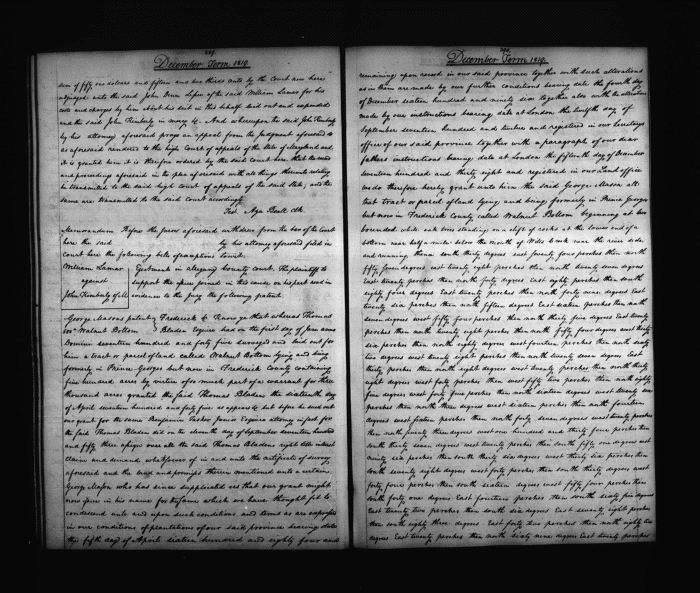 289
December Term 1819.
sum of fifty one dollars and fifteen and two thirds cents by the Court now here
adjudged unto the said John Dean Lessee of the said William Lamar for his
costs and charges by him about his suit in this behalf laid out and expended
and the said John Kimberly in mercy &c. And whereupon the said John Kimberly
by his attorney aforesaid prays an appeal from the Judgment aforesaid so
as aforesaid rendered to the high Court of appeals of the State of Maryland and
it is granted him it is therefore ordered by the said Court here that the record
and proceedings aforesaid in the plea aforesaid with all things thereunto relating
be transmitted to the said high court of appeals of the said State, and the
same are transmitted to the said Court accordingly
Test. Aza Beall Clk.
Memorandum Before the jurors aforesaid withdrew from the bar of the court
here the said by his attorney aforesaid filed in
court here the following bills of exceptions towit.
William Lamar Ejectment in allegany County court. The plaintiff to
against support the issue joined in this cause on his part read in
John Kimberly evidence to the jury the following patent
George Masons patent Frederick &c Know ye that whereas Thomas
500 Walnut Bottom Bladen Esquire had on the first day of June anno
Domini seventeen hundred and forty five surveyed and laid out for
him a tract or parcel of land called Walnut Bottom lying and being
formerly in Prince Georges but now in Frederick County containing
five hundred acres by virtue of so much part of a warrant for three
thousand acres granted the said Thomas Bladen the sixteenth day
of April seventeen hundred and forty five as appears &c but before he sued out
our grant for the same Benjamin Tasker Junior Esquire attorney in fact for
the said Thomas Bladen did on the eleventh day of September seventeen hundred
and fifty three assign over all the said Thomas Bladens right title interest
claim and demand whatsoever of in and unto the certificate of survey
aforesaid and the land and premises therein mentioned unto a certain
George Mason who has since supplicated us that our grant might
now issue in his name for the same which we have thought fit to
condescend unto and upon such conditions and terms as are expressed
in our conditions of plantations of our said province bearing date
the fifth day of April sixteen hundred and eighty four and
290
December Term 1819.
remaining upon record in our said province together with such alterations
as in them are made by our further conditions bearing date the fourth day
of December sixteen hundred and ninety six together also with the alterations
made by our instructions bearing date at London the twelfth day of
September seventeen hundred and twelve and registered in our Secretarys
office of our said province together with a paragraph of our dear
fathers instructions bearing date at London the fifteenth day of December
seventeen hundred and thirty eight and registered in our Land office
We do therefore hereby grant unto him the said George Mason all
that tract or parcel of land lying and being formerly in Prince Georges
but now in Frederick County called Walnut Bottom beginning at two
bounded white oak trees standing on a clift of rocks at the lower end of a
bottom near half a mile below the mouth of Wills Creek near the river side
and running thence south thirty degrees east twenty four perches then north
fifty four degrees east twenty eight perches then north twenty seven degrees
east twenty perches then north thirty degrees east twenty perches then south
eighty four degrees East twenty perches then north forty nine degrees East
twenty six perches then north fifteen degrees East sixteen perches then north
seven degrees west fifty four perches then north thirty five degrees East twenty
perches then north twenty eight perches then north fifty four degrees west thirty
perches then north eighty degrees west fourteen perches then north sixty
two degrees west twenty eight perches then north twenty seven degrees East
twenty perches then north thirty degrees west twenty perches then north thirty
eight degrees west forty perches then west fifty two perches then north eighty
four degrees west forty five perches then north sixteen degrees west twenty six
perches then north three degrees west sixteen perches then north fourteen
degrees East sixteen perches then north forty seven degrees west twenty perches
then north twenty three degrees west one hundred and thirty four perches then
south thirty seven degrees west twenty perches then south fifty one degrees west
ninety six perches then south thirty six degrees west thirty six perches then
south seventy eight degrees west forty perches then south thirty degrees west
forty four perches then south sixteen degrees west forty perches then
south forty one degrees East fourteen perches then south sixty five degrees
East twenty two perches then south six degrees East seventy eight perches
then south eighty three degrees East forty six perches then north eighty two
degrees East twenty perches then north sixty nine degrees East twenty perches